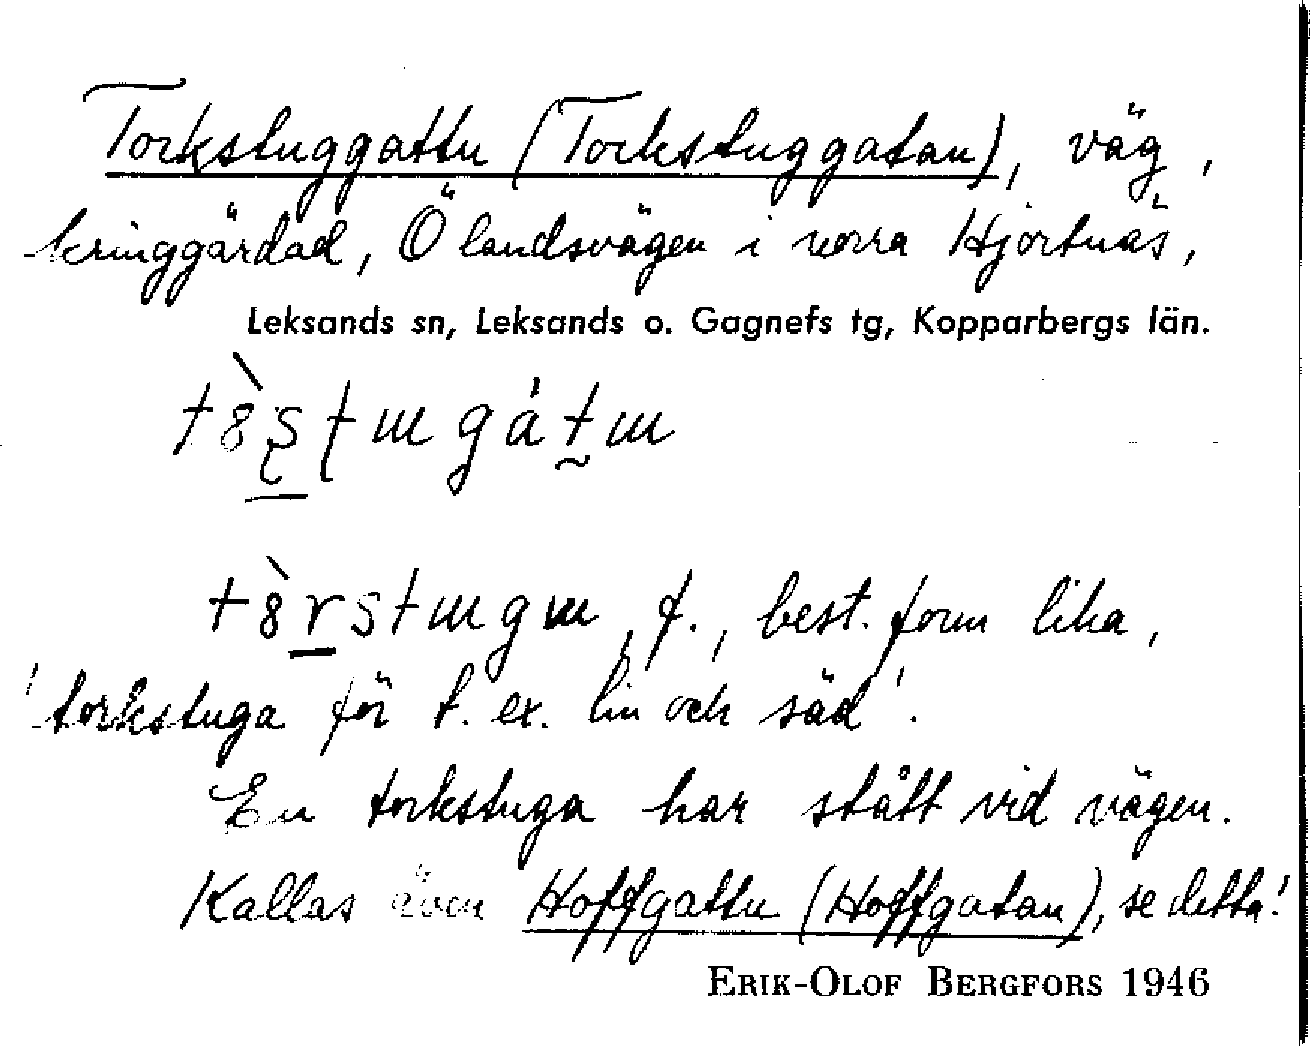 Torkstuggattu (Torkstuggatan), väg,
kringgärdad, Ö landsvägen i norra Hjortnäs,
Leksands sn, Leksands o. Gagnefs tg, Kopparbergs län.
'torkstuga för t. ex. lin och säd'.
f., best. form lika,
En torkstuga har stått vid vägen.
Kallas även Hoffgattu (Hoffgatan), se detta!
ERIK-OLOF BERGFORS 1946